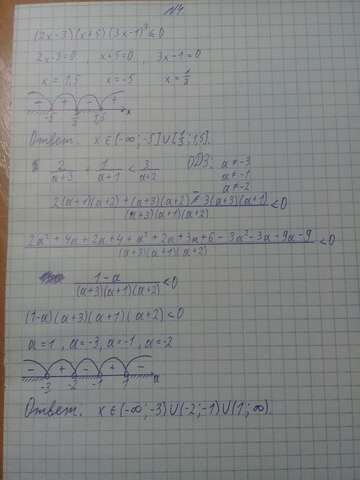 №4
(2x-3)(x+5)(3x-1)³≤0
2x-3=0, x+5=0, 3x-1=0
x=1,5 x=-5 x=1/3
- + - +
-5 1/3 1,5 x
Ответ. x∈(-∞;-5]∪[1/3;1,5].
2/(a+3) + 1/(a+1) < 3/(a+2) ОДЗ: a≠-3
a≠-1
a≠-2
(2(a+1)(a+2)+(a+3)(a+2)-3(a+3)(a+1))/((a+3)(a+1)(a+2))<0
(2a²+4a+2a+4+a²+2a+3a+6-3a²-3a-9a-9)/((a+3)(a+1)(a+2))<0
(1-a)/((a+3)(a+1)(a+2))<0
(1-a)(a+3)(a+1)(a+2)<0
a=1, a=-3, a=-1, a=-2
- + - + -
-3 -2 -1 1 a
Ответ. x∈(-∞;-3)∪(-2;-1)∪(1;∞).